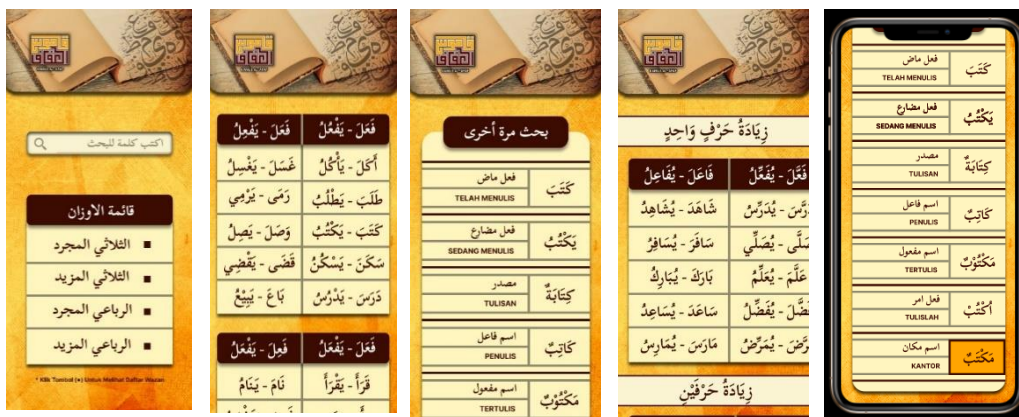 اكتب كلمة للبحث
قائمة الاوزان
الثلاثي المجرد
الثلاثي المزيد
الرباعي المجرد
الرباعي المزيد
* Klik Tombol (▪) Untuk Melihat Daftar Wazan
فَعَلَ - يَفْعُلُ فَعَلَ - يَفْعِلُ
أَكَلَ - يَأْكُلُ غَسَلَ - يَغْسِلُ
طَلَبَ - يَطْلُبُ رَمَى - يَرْمِي
كَتَبَ - يَكْتُبُ وَصَلَ - يَصِلُ
سَكَنَ - يَسْكُنُ قَضَى - يَقْضِي
دَرَسَ - يَدْرُسُ بَاعَ - يَبِيْعُ
فَعَلَ - يَفْعَلُ فَعِلَ - يَفْعَلُ
قَرَأَ - يَقْرَأُ نَامَ - يَنَامُ
بحث مرة أخرى
كَتَبَ فعل ماض
TELAH MENULIS
يَكْتُبُ فعل مضارع
SEDANG MENULIS
كِتَابَةٌ مصدر
TULISAN
كَاتِبٌ اسم فاعل
PENULIS
مَكْتُوْبٌ اسم مفعول
TERTULIS
زِيَادَةُ حَرْفٍ وَاحِدٍ
فَعَّلَ - يُفَعِّلُ فَاعَلَ - يُفَاعِلُ
شَاهَدَ - يُشَاهِدُ
سَافَرَ - يُسَافِرُ
عَلَّمَ - يُعَلِّمُ بَارَكَ - يُبَارِكُ
سَاعَدَ - يُسَاعِدُ
مَارَسَ - يُمَارِسُ
زِيَادَةُ حَرْفَيْنِ
كَتَبَ فعل ماض
TELAH MENULIS
يَكْتُبُ فعل مضارع
SEDANG MENULIS
كِتَابَةٌ مصدر
TULISAN
كَاتِبٌ اسم فاعل
PENULIS
مَكْتُوْبٌ اسم مفعول
TERTULIS
اُكْتُبْ فعل امر
TULISLAH
مَكْتَبٌ اسم مكان
KANTOR